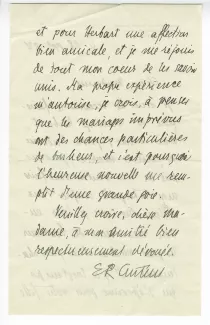 et pour Herbart une affection
bien amicale, et je me réjouis
de tout mon coeur de les savoir
unis. Ma propre expérience
m'autorise, je crois, à penser
que les mariages imprévus
ont des chances particulières
de bonheur, et c'est pourquoi
l'heureuse nouvelle me rem-
plit d'une grande joie.
Veuillez croire, chère ma-
dame, à mon amitié bien
respectueusement dévouée.
ER Curtius